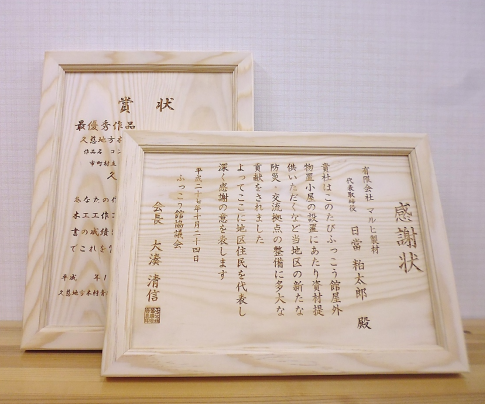 賞状
最優秀作品
久慈地方
作品名
市町村
久
あなたの
木工工作
書の成績
でこれを
平成 年
久慈地方木材青
感謝状
有限会社 マルヒ製材
代表取締役 日當 粘太郎 殿
貴社はこのたびふっこう館屋外
物置小屋の設置にあたり資材提
供いただくなど当地区の新たな
防災・交流拠点の整備に多大な
貢献をされました
よってここに地区住民を代表し
深く感謝の意を表します
平成二十七年十月二十四日
ふっこう館協議会
会長 大湊 清信